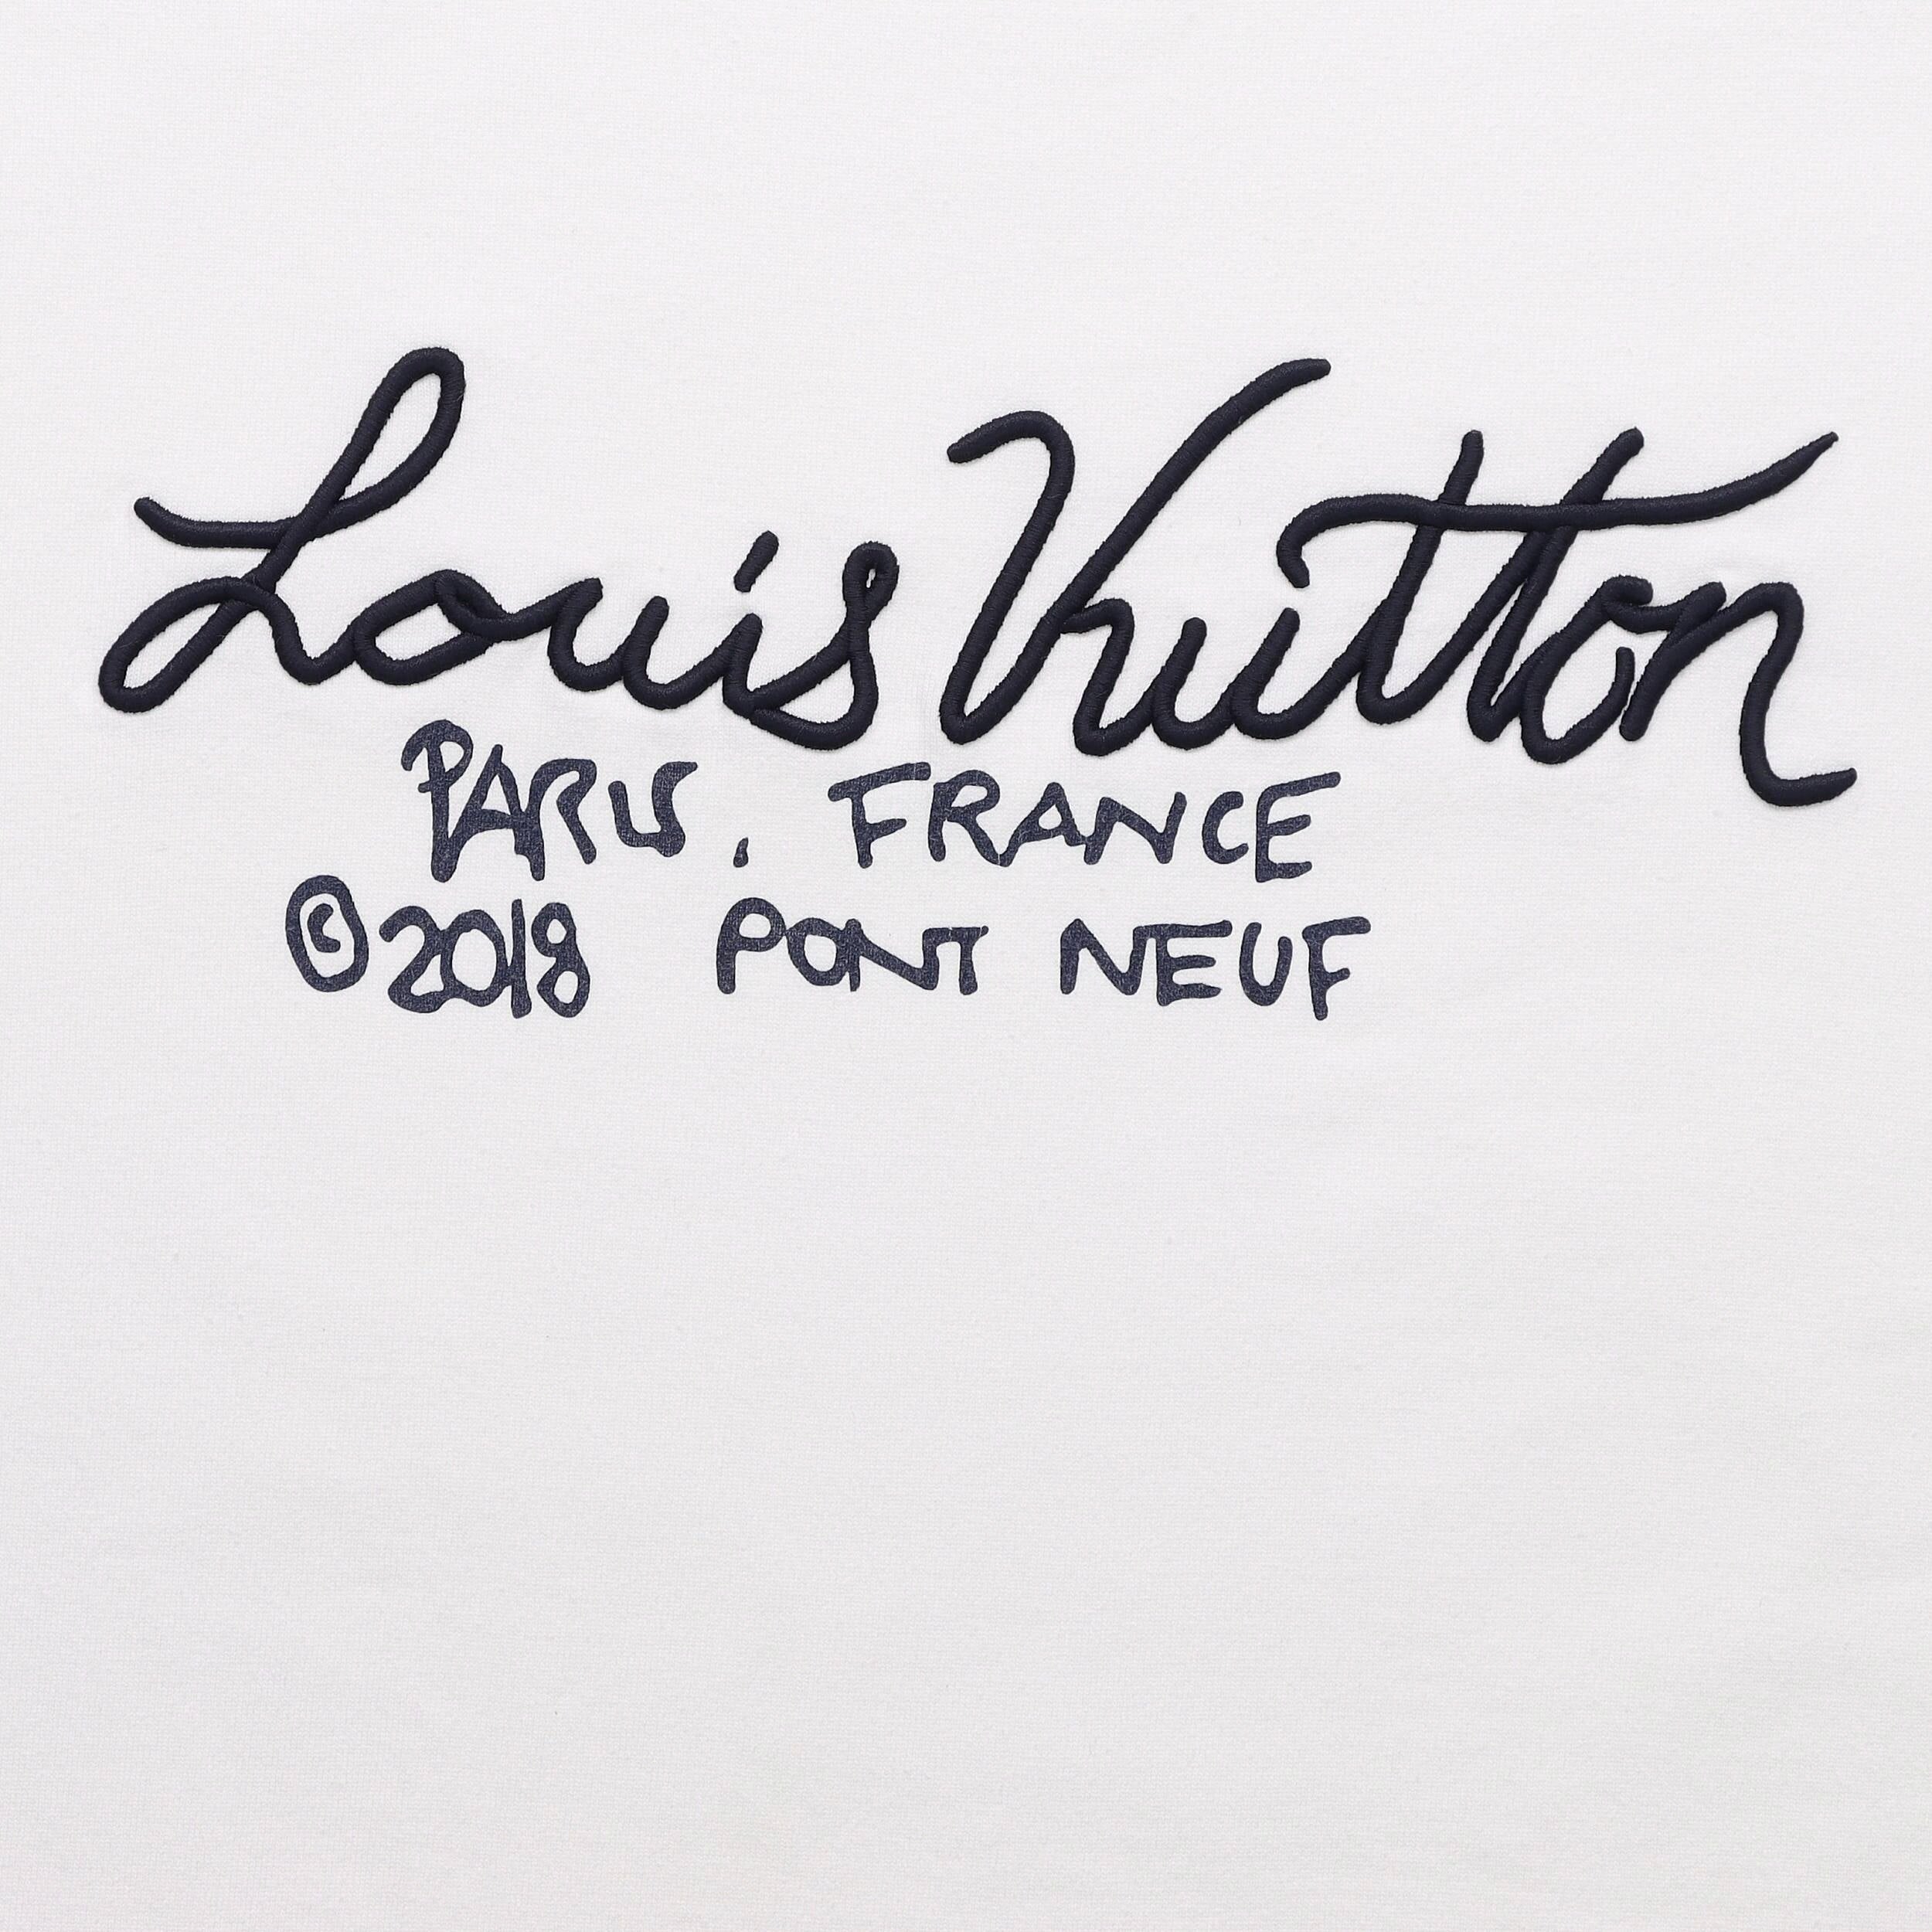 Louis Vuitton
PARIS, FRANCE
©2018 PONT NEUF